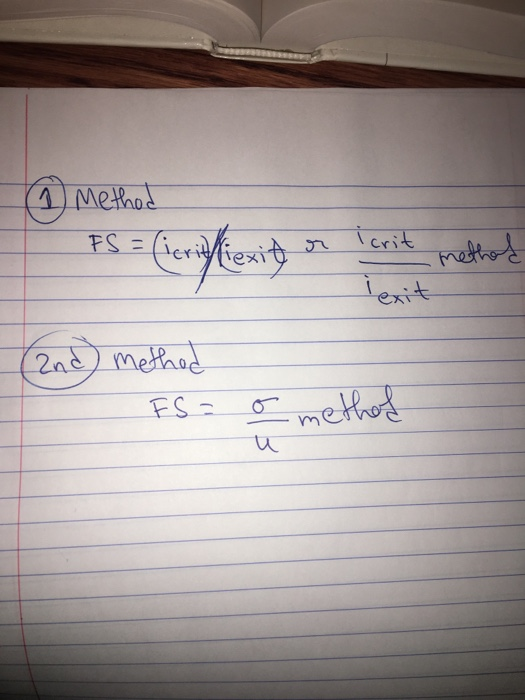 1 Method
FS = (icrit)/(iexit) or icrit/iexit method
2nd method
FS = σ/u method